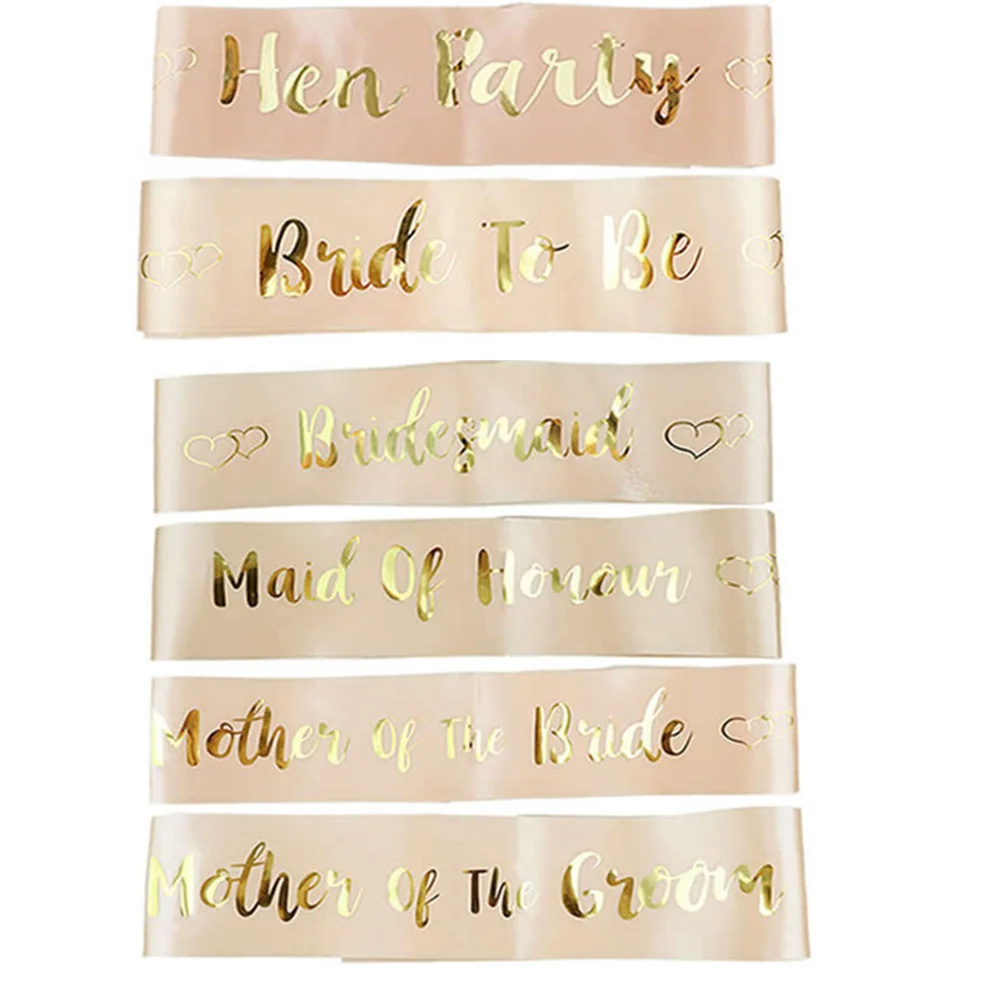 Hen Party
Bride To Be
Bridesmaid
Maid Of Honour
Mother Of The Bride
Mother Of The Groom